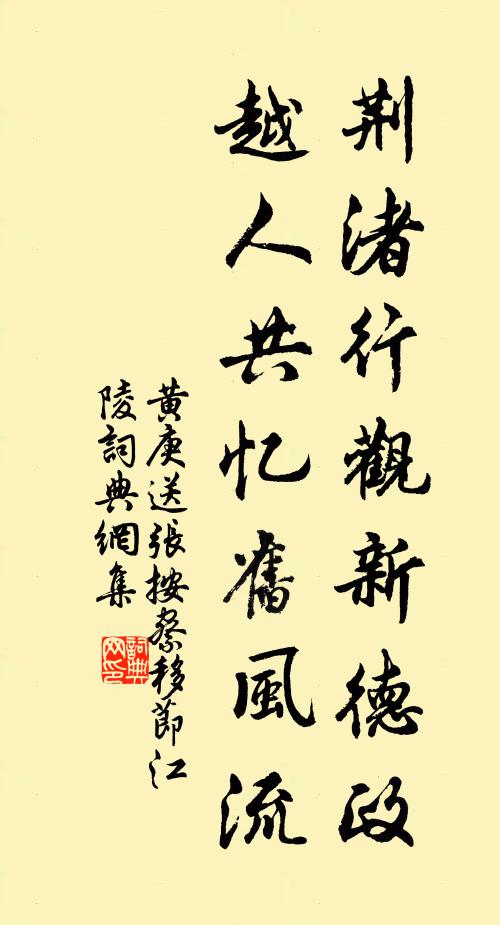 荆渚行觀新德政
越人共忆舊風流
黄庚送張按察移節江
陵詞典網集
詞典
网印